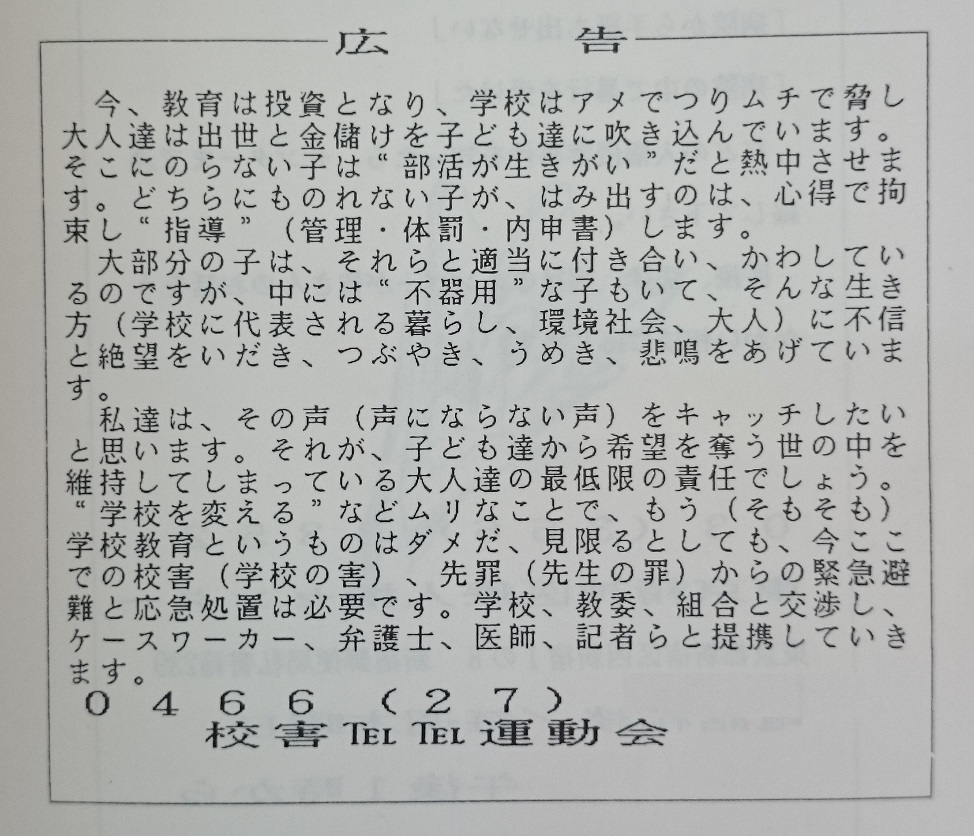 広　　　告
今、教育は投資となり、学校はアメでつりムチで脅し
大人達は出世と金儲けを子ども達に吹き込んでいます。
そこにのらない子は“部活が生きがい”だと熱中させま
す。どちらにものれない子が、はみ出すのは、心得で拘
束し“指導”（管理・体罰・内申書）します。
大部分の子は、それらと適当に付き合い、かわしてい
るのですが、中には“不器用”な子もいて、そんな生き
方（学校に代表される暮らし、環境社会、大人）に不信
と絶望をいだき、つぶやき、うめき、悲鳴をあげていま
す。
私達は、その声（声にならない声）をキャッチしたい
と思います。それが、子ども達から希望を奪う世の中を
維持してしまっている大人達の最低限の責任でしょう。
“学校を変える”などムリなことで、もう（そもそも）
学校教育というものはダメだ、見限るとしても、今ここ
での校害（学校の害）、先罪（先生の罪）からの緊急避
難と応急処置は必要です。学校、教委、組合と交渉し、
ケースワーカー、弁護士、医師、記者らと提携していき
ます。
０４６６（２７）
校害TEL TEL運動会